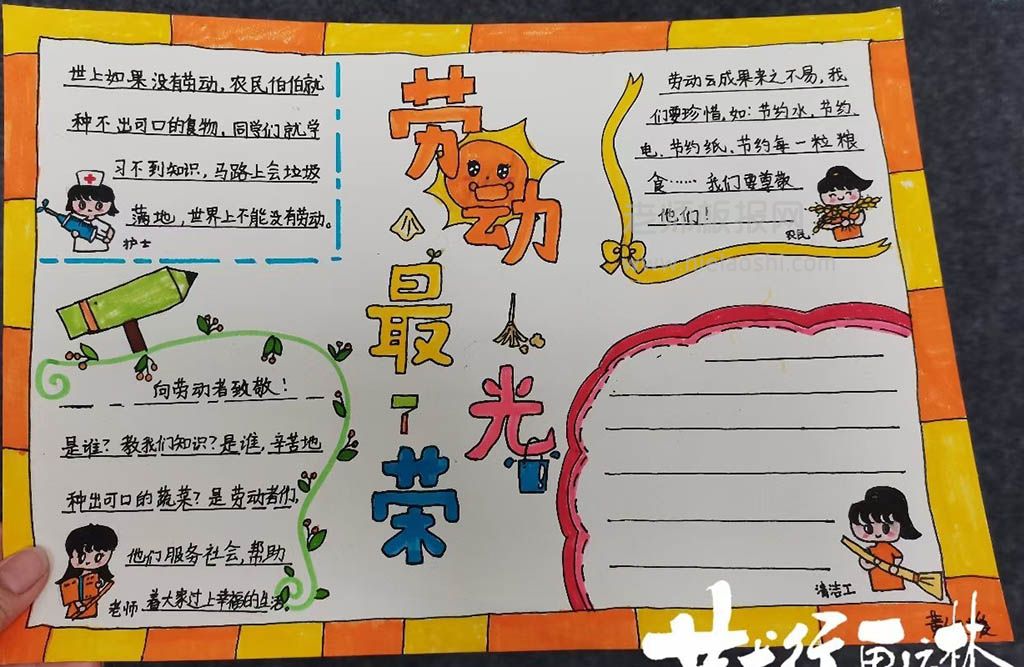 世上如果没有劳动，农民伯伯就
种不出可口的食物，同学们就学
习不到知识，马路上会垃圾
满地，世界上不能没有劳动。
护士
劳动
最
光
荣
劳动云成果来之不易，我
们要珍惜，如：节约水，节约
电、节约纸、节约每一粒粮
食……我们要尊敬
他们！
农民
老师板报网
向劳动者致敬！
是谁？教我们知识？是谁，辛苦地
种出可口的蔬菜？是劳动者们，
他们服务社会，帮助
着大家过上幸福的生活。
老师
清洁工